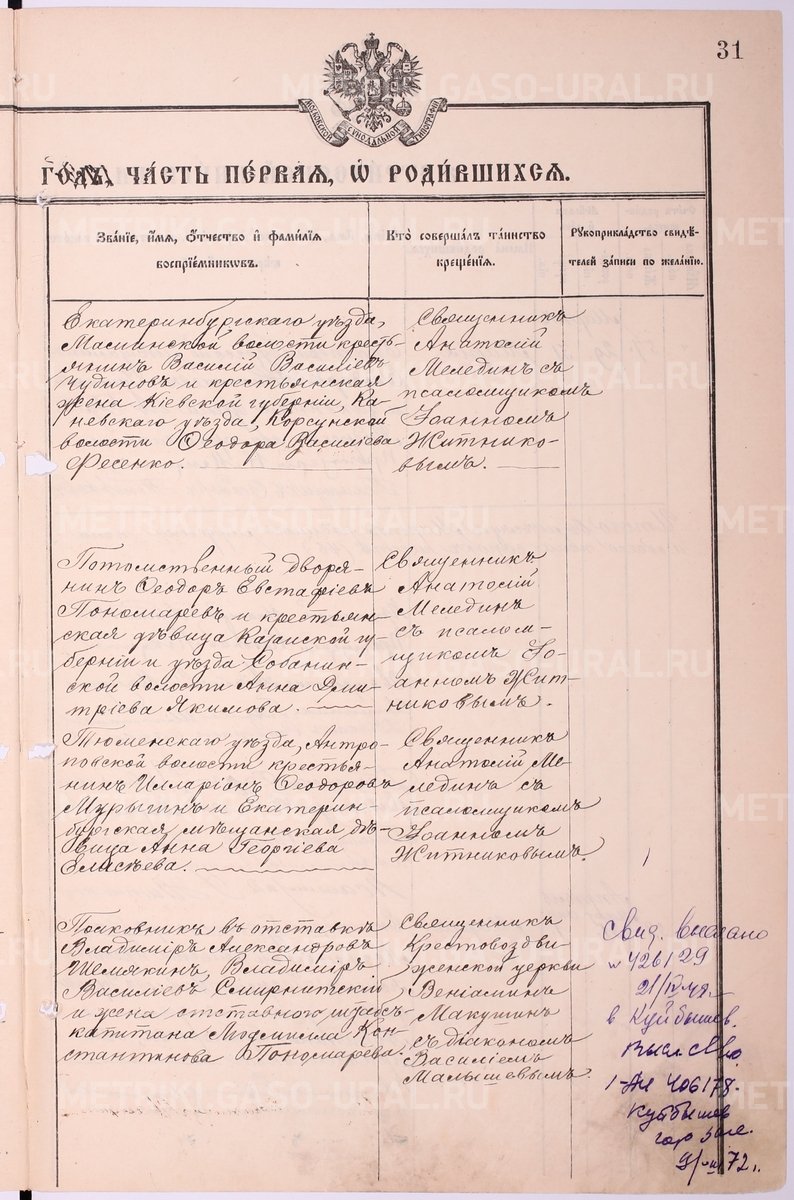 31
МОСКОВСКОЙ СѴНОДАЛЬНОЙ ТИПОГРАФІИ
ГОДЪ, ЧАСТЬ ПЕРВАЯ, Ѡ РОДИВШИХСЯ.
ЗВАНІЕ, ИМЯ, ОТЧЕСТВО И ФАМИЛІЯ
ВОСПРІЕМНИКѠВЪ.
КТО СОВЕРШАЛЪ ТАИНСТВО
КРЕЩЕНІЯ.
РУКОПРИКЛАДСТВО СВИДѢ-
ТЕЛЕЙ ЗАПИСИ ПО ЖЕЛАНІЮ.
Екатеринбургскаго уѣзда,
Маминской волости кресть-
янинъ Василій Василіевъ
Чудиновъ и крестьянская
жена Кіевской губерніи, Ка-
невскаго уѣзда, Корсунской
волости Ѳеодора Василіева
Фесенко.
Священникъ
Анатолій
Мелединъ съ
псаломщикомъ
Іоанномъ
Житнико-
вымъ.
Потомственный дворя-
нинъ Ѳеодоръ Евстафіевъ
Пономаревъ и крестьян-
ская дѣвица Казанской гу-
берніи и уѣзда Собакин-
ской волости Анна Дми-
тріева Якимова.
Священникъ
Анатолій
Мелединъ
съ псалом-
щикомъ Іо-
анномъ Жит-
никовымъ.
Тюменскаго уѣзда, Антро-
повской волости крестья-
нинъ Илларіонъ Ѳеодоровъ
Мурыгинъ и Екатерин-
бургская мѣщанская дѣ-
вица Анна Георгіева
Елисѣева.
Священникъ
Анатолій Ме-
лединъ съ
псаломщикомъ
Іоанномъ
Житниковымъ.
Полковникъ въ отставкѣ
Владиміръ Александровъ
Шемякинъ, Владиміръ
Василіевъ Смирнитскій
и жена отставного штабсъ-
капитана Людмилла Кон-
стантинова Пономарева.
Священникъ
Крестовоздви-
женской церкви
Веніаминъ
Макушинъ
съ діакономъ
Василіемъ
Малышевымъ.
Свид. выслано
426129
в Куйбышев.
406178
Куйбышев
72 г.
METRIKI.GASO-URAL.RU